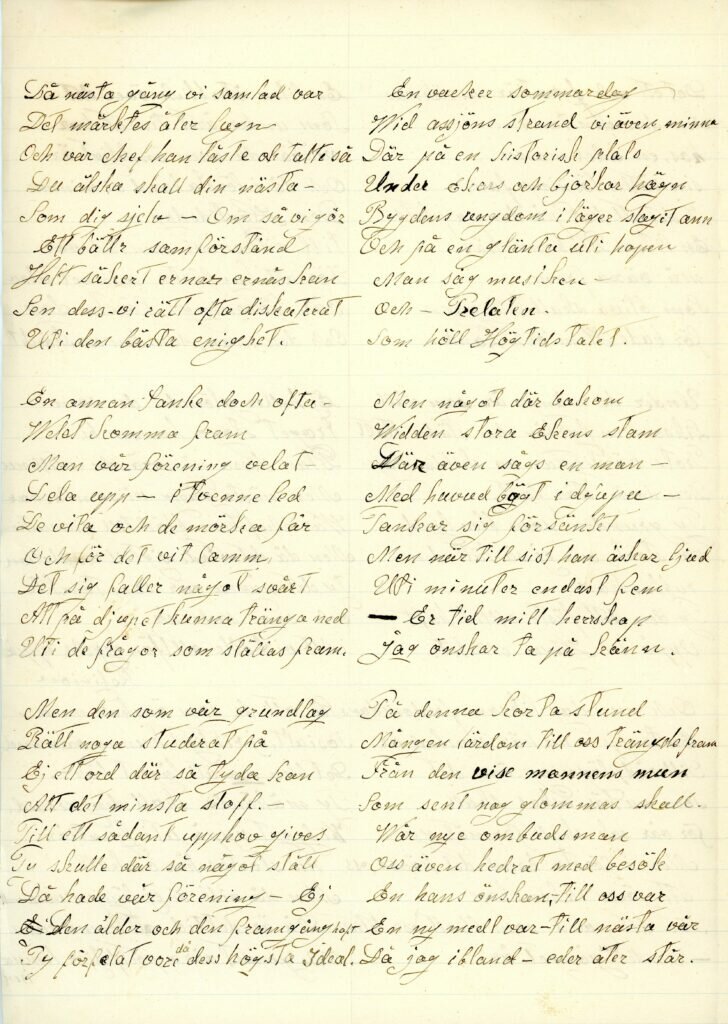 Då nästa gång vi samlad var
Det märktes åter lugn
Och vår chef han läste oh talte så
Du älska skall din nästa –
Som dig sjelv – Om så vi gör
Ett bättr samförstånd
Helt säkert ernas ernås kan
Sen dess vi rätt ofta diskuterat
Uti den bästa enighet.
En annan tanke doch ofta –
Welet komma fram
Man vår förening velat –
Dela upp – i tvenne led
De vita och de mörka får
Och för det vit lamm
Det sig faller något svårt
Att på djupet kunna tränga ned
Uti de frågor som ställas fram.
Men den som vår grundlag
Rätt noga studerat på
Ej ett ord där så tyda kan
Att det minsta stoff. –
Till ett sådant upphov gives
Ty skulle där så något stått
Då hade vår förening – Ej
den ålder och den framgång haft
Ty förfelat vore då dess högsta Ideal.
En vacker sommardag
Wid assjöns strand vi även minna
Där på en historisk plats
Under Ekars och björkar hägn
Bygdens ungdom i läger slagit ann
Och på en glänta uti hopen
Man såg musiken –
och – Prelaten.
Som höll Högtidstalet.
Men något där bakom
Widden stora Ekens stam
Där även sågs en man –
Med huvud böjt i djupa –
Tankar sig försänkt
Men när till sist han äskar ljud
Uti minuter endast fem
– Er tid mitt herrskap
Jag önskar ta på känn.
På denna korta stund
Mången lärdom till oss trängde fram
Från den vise mannens mun
Som sent nog glömmas skall.
Wår nye ombudsman
Oss även hedrat med besök
En hans önskan, till oss var
En ny medl var – till nästa vår
Då jag ibland – eder åter står. –